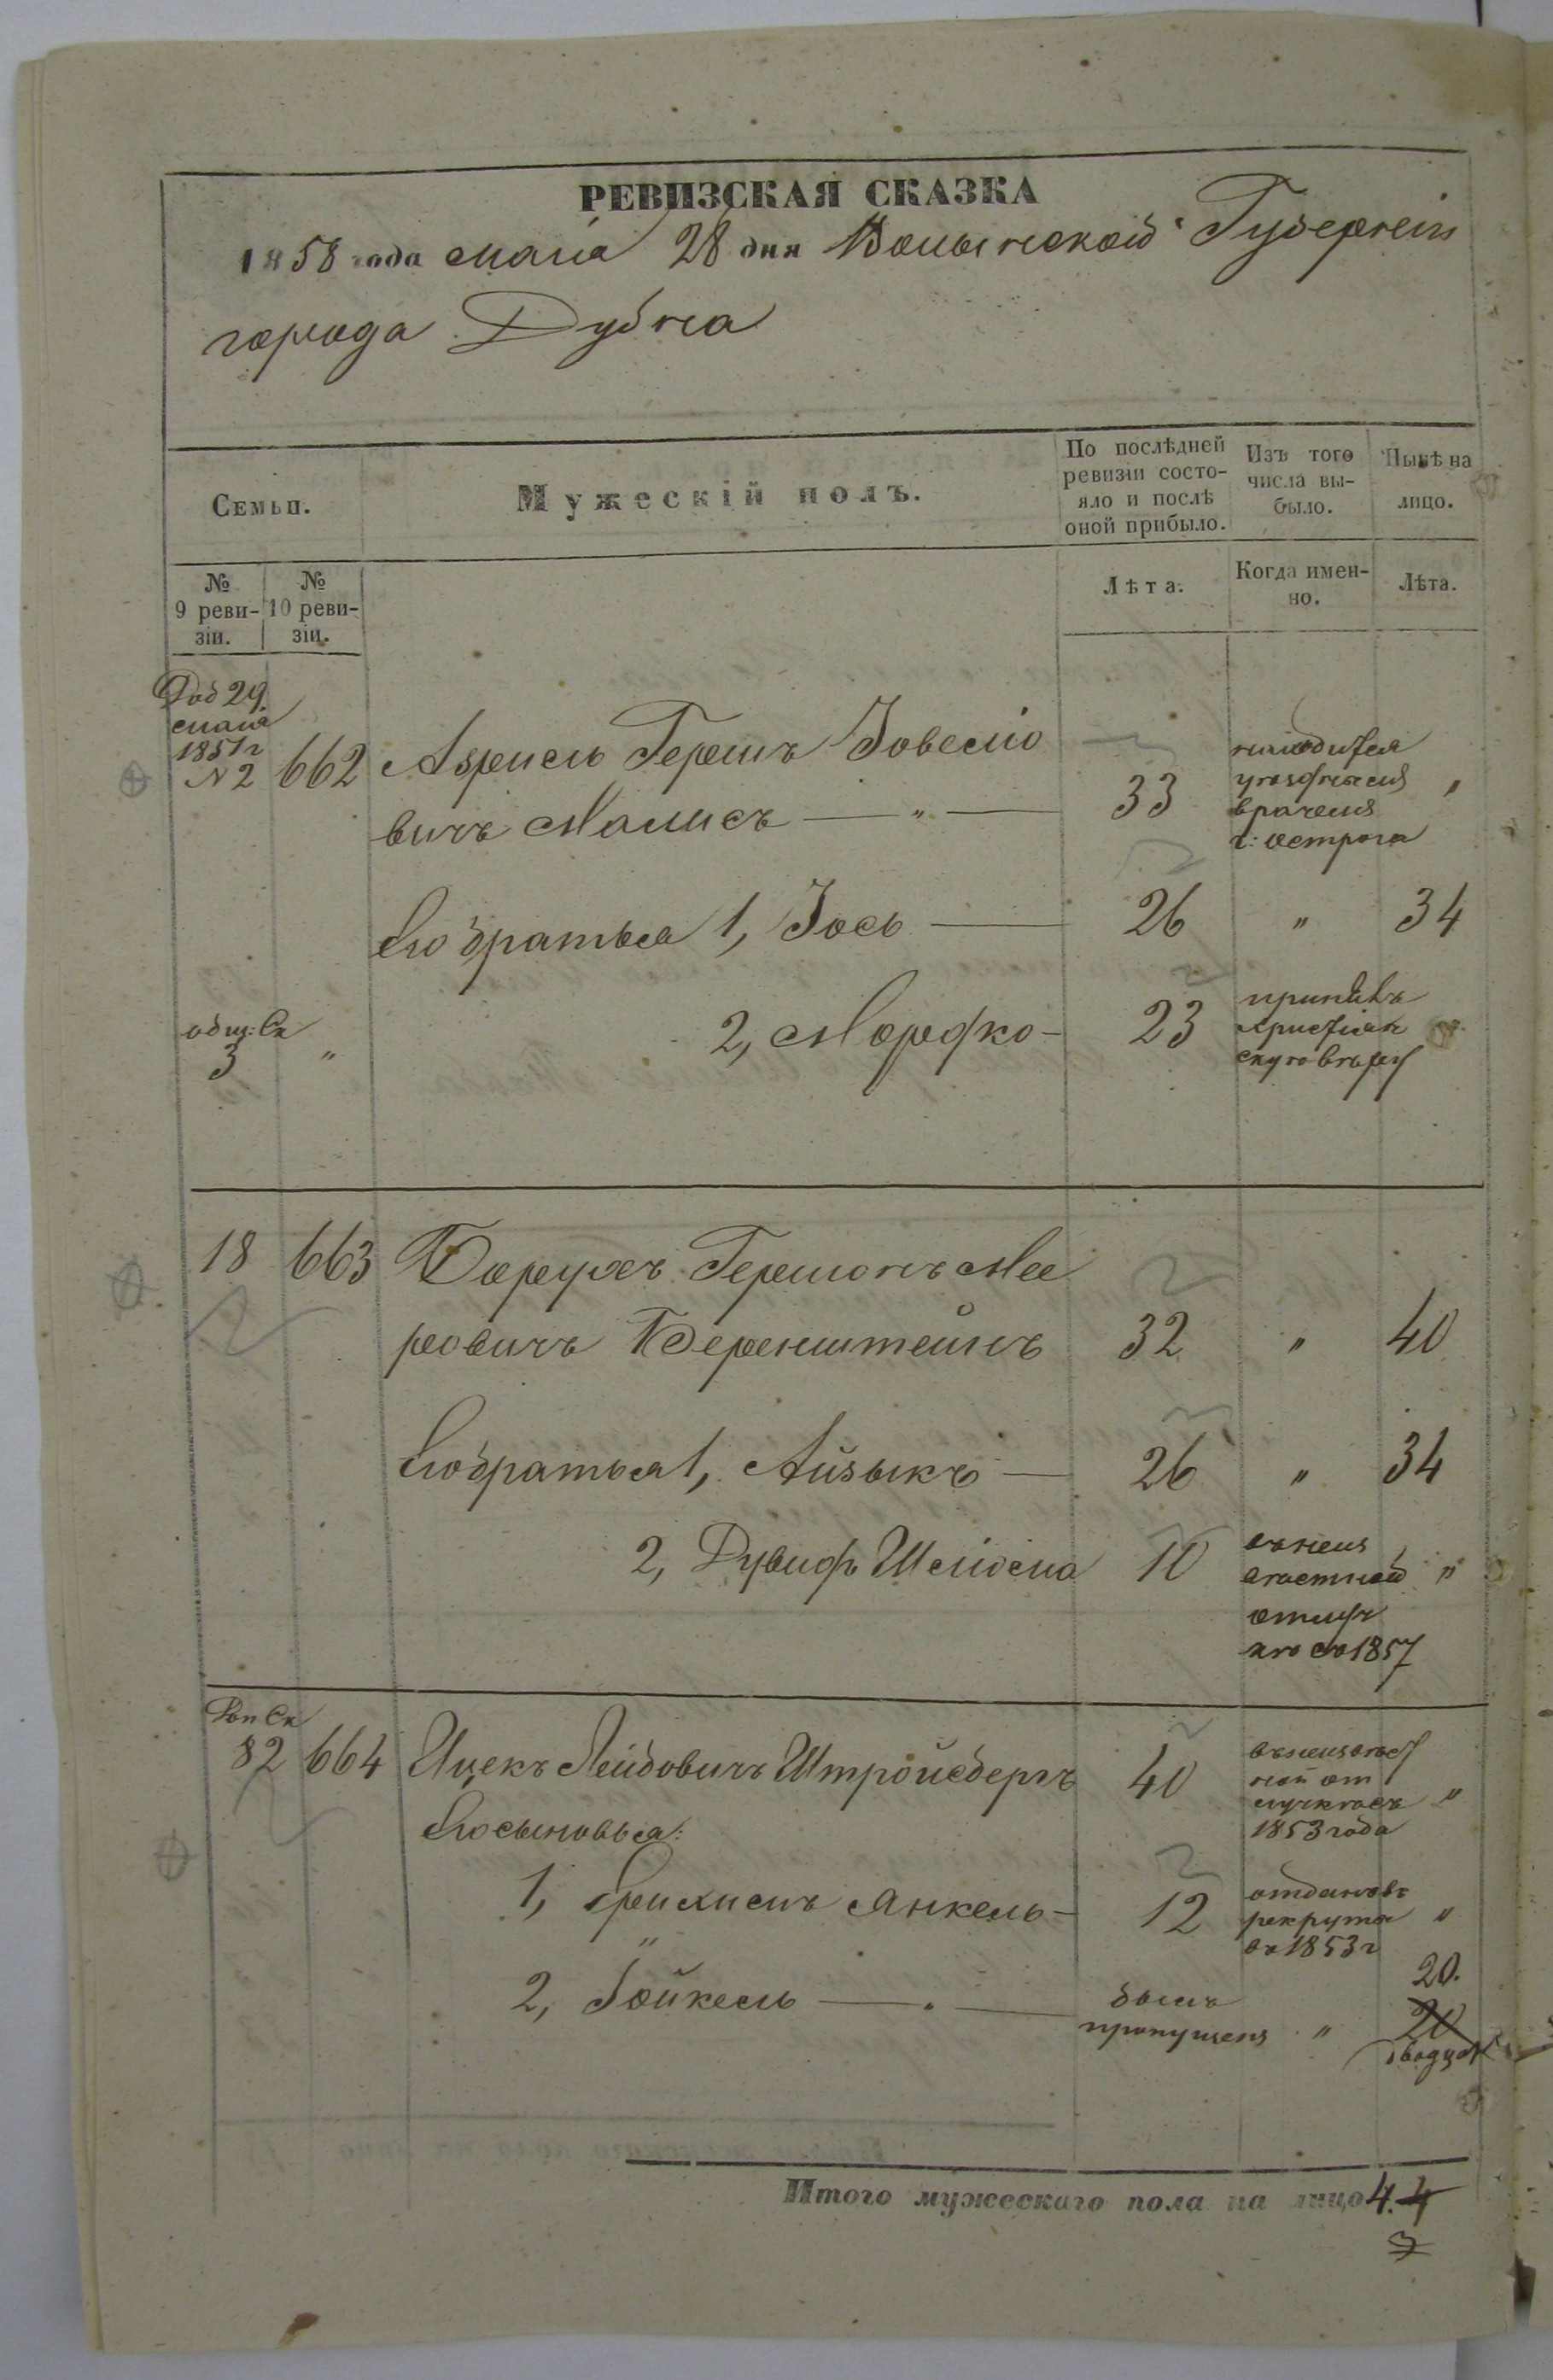 РЕВИЗСКАЯ СКАЗКА
1858 года маія 28 дня Волынской Губерніи
города Дубна
Семьи.
Мужескій полъ.
По послѣдней ревизіи состо-
яло и послѣ
оной прибыло.
Изъ того
числа вы-
было.
Нынѣ на
лицо.
№
9 реви-
зіи.
№
10 реви-
зіи.
Лѣта.
Когда имен-
но.
Лѣта.
Доб 29
маія
1851 г
№ 2 662 Азриель Гершъ Іовелю
вичъ Малисъ — „ — 33
находится
врачемъ
г: острога „
Его братья 1, Іось — 26 „ 34
общ: Ск
3 „ 2, Мордко - 23
принялъ
христіан
скую вѣру
18 663 Борухъ Гершонъ Мее
ровичъ Беренштейнъ 32 „ 40
Его братья 1, Айзыкъ — 26 „ 34
2, Дувидъ Шелйома 10
въ неиз
вѣстной „
отлуч
кѣ съ 1857
Доп Ск
82 664 Ицекъ Лейбовичъ Штройсбергъ 40
въ неизвѣст
ной от
лучкѣ съ „
1853 года
Его сыновья:
1, Янкель - 12
отданъ въ
рекруты „
въ 1853 г
2, Іойкель — . — былъ
пропущенъ „
20.
20
двадцат
Итого мужескаго пола на лицо 4. 4
3